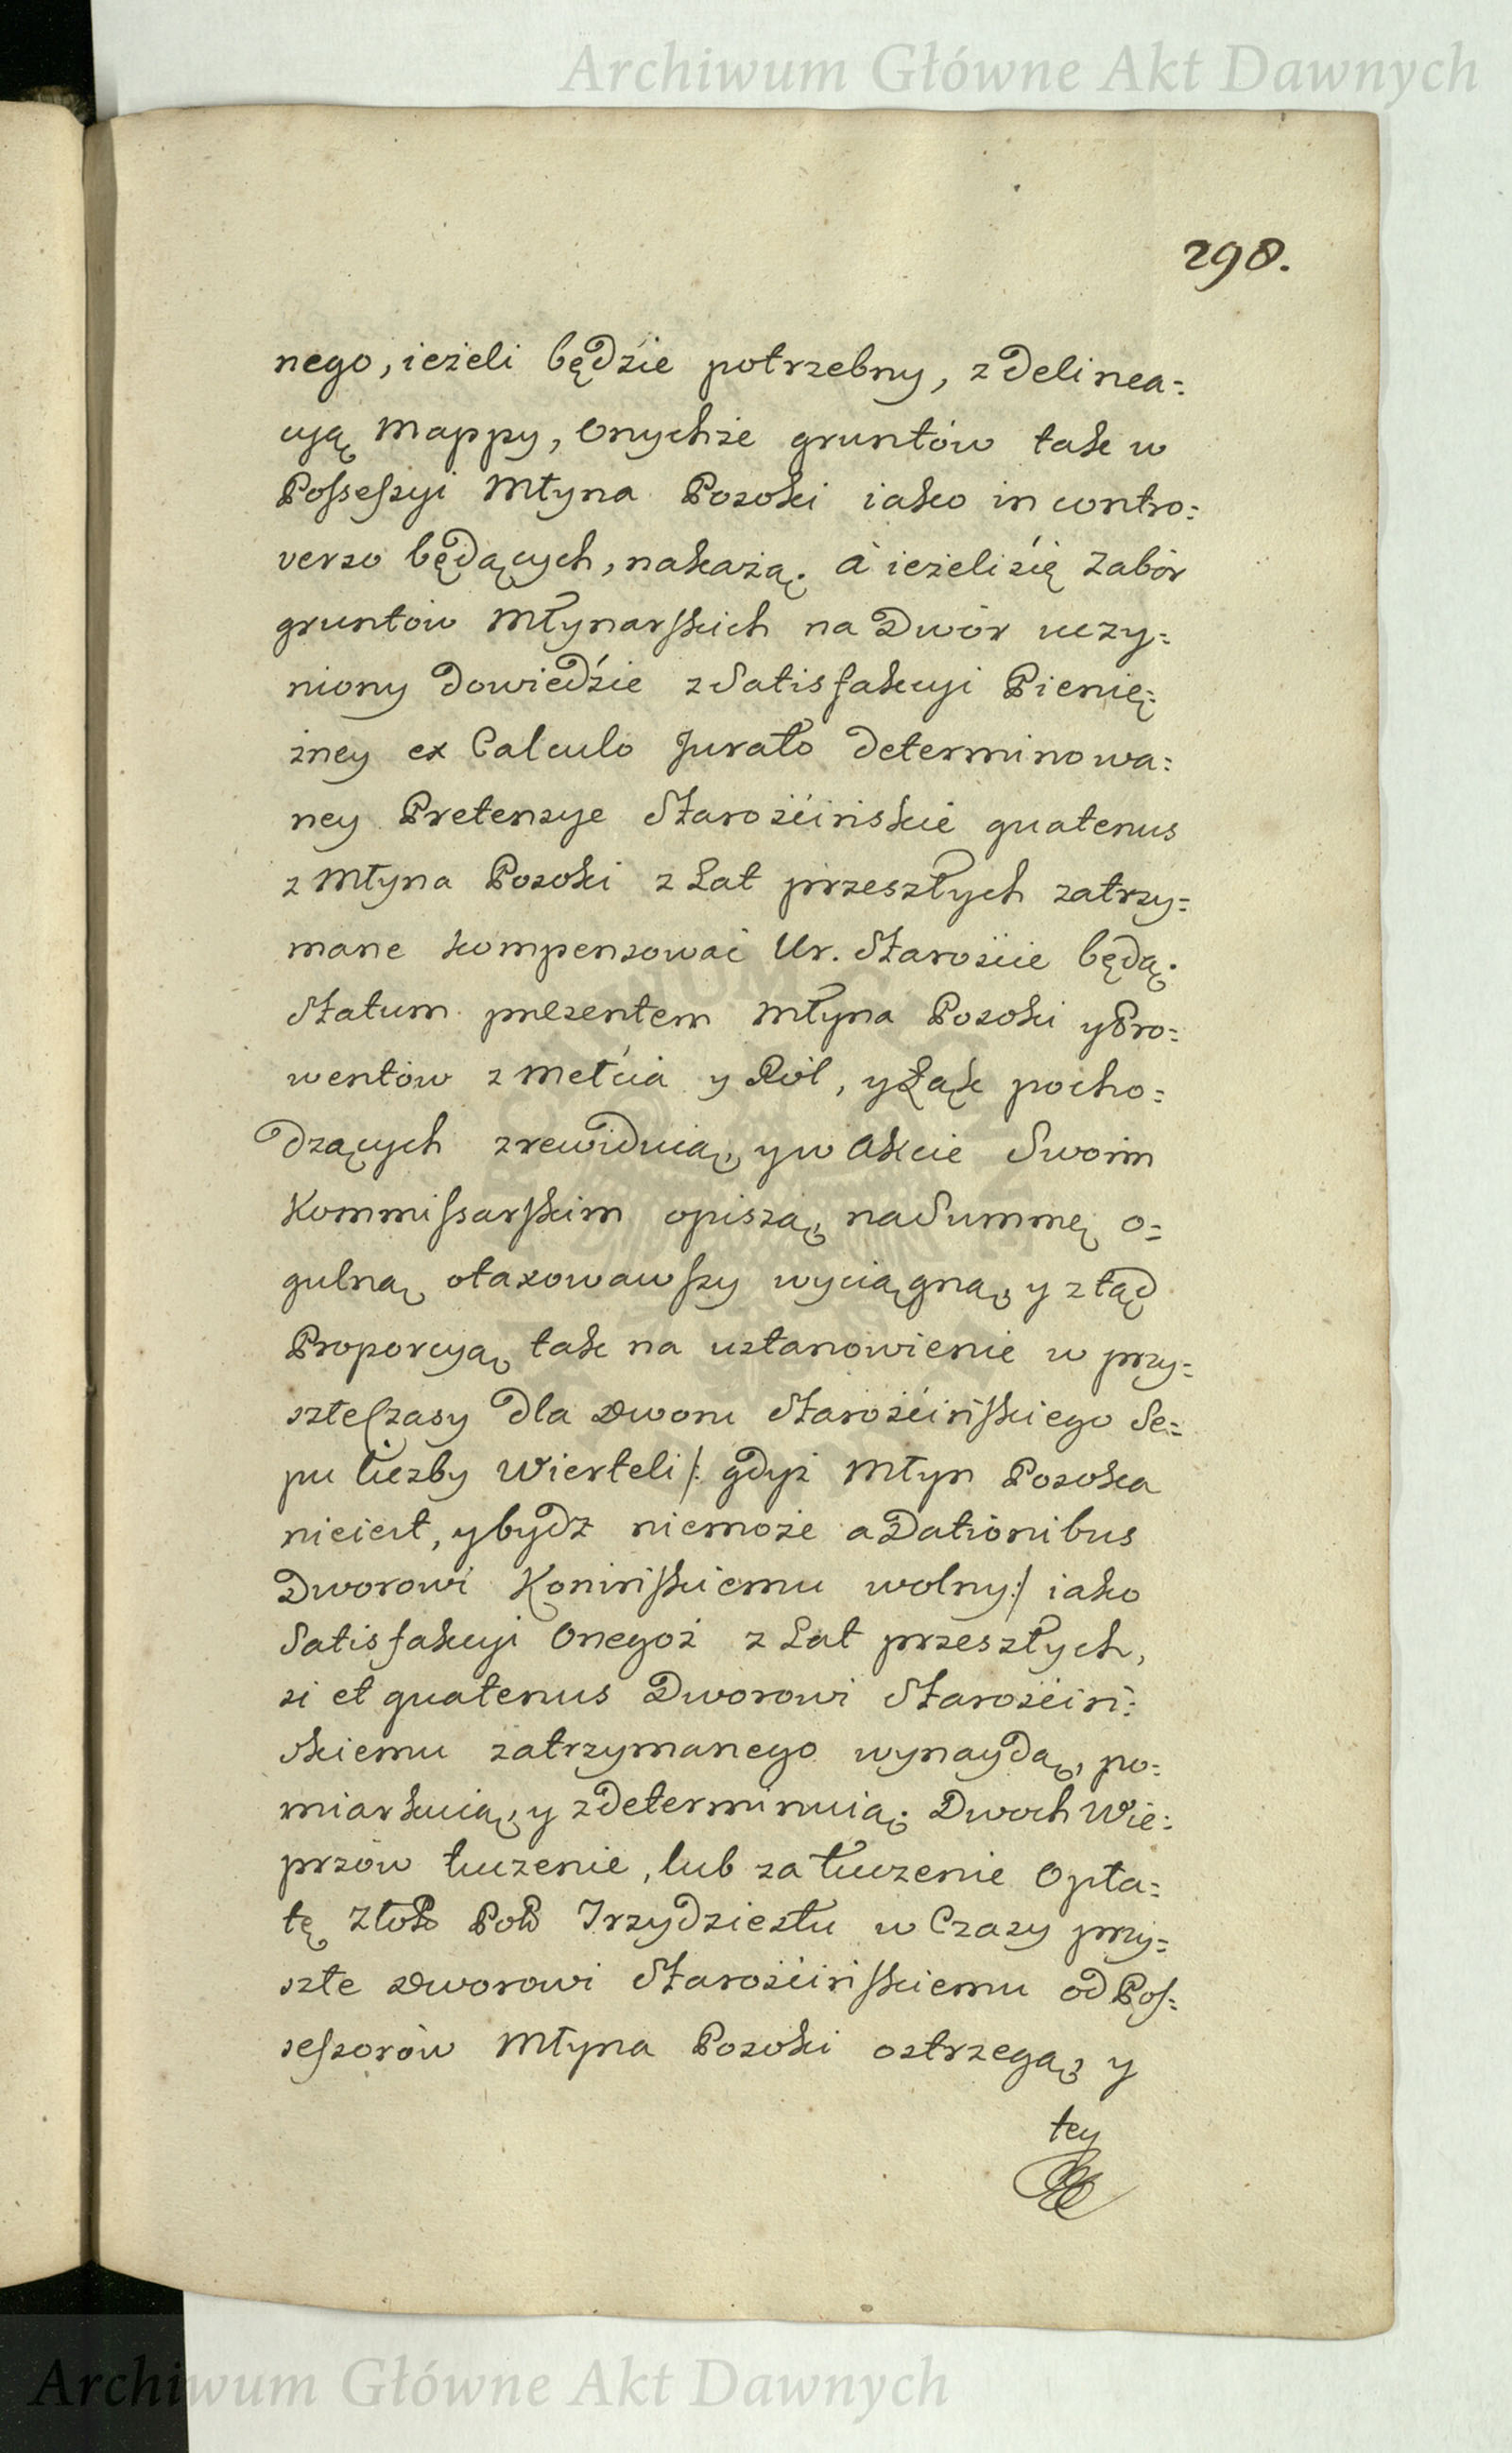 Archiwum Główne Akt Dawnych
298.
nego, ieżeli będzie potrzebny, z delinea=
cyą Mappy, Onychże gruntów tak w
Possessyi Młyna Posoki iako in contro=
verso będących, nakażą. à ieżeli się zabór
gruntów Młynarskich na Dwór uczy=
niony dowiedzie z Satisfakcyi Pienię=
żney ex Calculo Jurato determinowa=
ney Pretensye Starościńskie quatenus
z Młyna Posoki z Lat przeszłych zatrzy=
mane kompensować Ur. Starościе będą.
Statum presentem Młyna Posoki y Pro=
wentów z Mełcia y Ról, y Łąk pocho=
dzących zrewiduią, y w Akcie Swoim
Kommissarskim opiszą, na Summę o=
gulną otaxowawszy wyciągną, y ztąd
Proporcyą tak na ustanowienie w przy=
szłe Czasy dla Dworu Starościńskiego Se=
pu liczby Wierteli /: gdyż Młyn Posoka
nieiest, y bydz niemoże a Dationibus
Dworowi Konińskiemu wolny :/ iako
Satisfakcyi Onegoż z Lat przeszłych,
si et quatenus Dworowi Starościń=
skiemu zatrzymanego wynaydą, po=
miarkuią, y zdeterminuią. Dwoch Wie=
przów tuczenie, lub za tuczenie Opła=
tę Złoł Pol Trzydziestu w Czasy przy=
szłe Dworowi Starościńskiemu od Pos=
sessorów Młyna Posoki ostrzegą, y
tey
Archiwum Główne Akt Dawnych